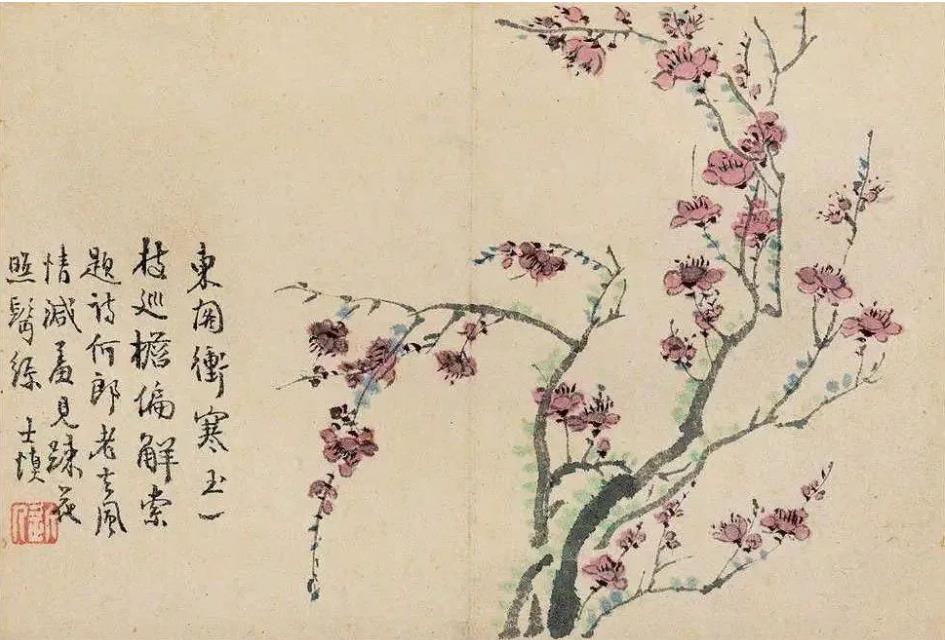 東閣衝寒玉一
枝巡檐偏解索
題詩何郎老去風
情減羞見踈花
照鬢絲 士慎